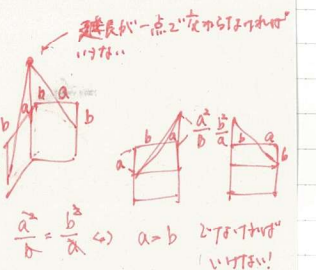 延長が一点で交わらなければ
いけない
b a
a
b b
b a
a
a²/b b²/a
b a
b
a²/b = b²/a ⇔ a = b でなければ
いけない!